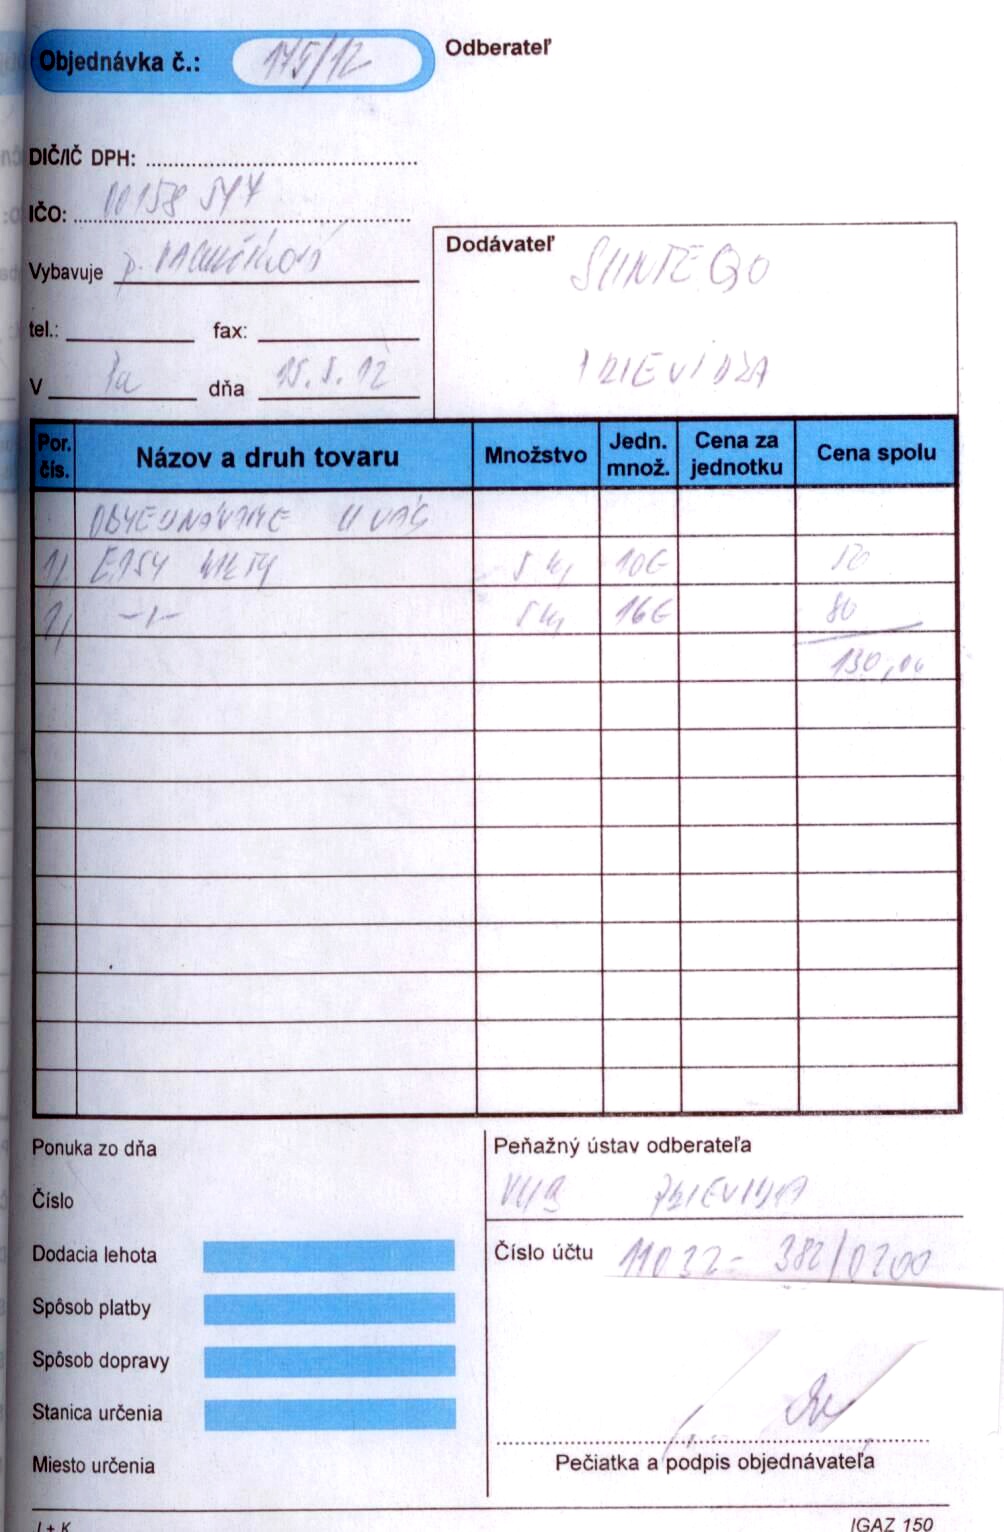 Objednávka č.: 175/12
Odberateľ
DIČ/IČ DPH:
IČO: 00158 517
Vybavuje p.
tel.: fax:
V Pa dňa 15.5.12
Dodávateľ
SUNTEGO
PRIEVIDZA
Por. čís. Názov a druh tovaru Množstvo Jedn. množ. Cena za jednotku Cena spolu
OBJEDNÁVAME U VÁS
1) 5 kg 10€ 50
2) -//- 5 kg 16€ 80
130,00
Ponuka zo dňa
Číslo
Dodacia lehota
Spôsob platby
Spôsob dopravy
Stanica určenia
Miesto určenia
Peňažný ústav odberateľa
VÚB PRIEVIDZA
Číslo účtu 11032-382/0200
Pečiatka a podpis objednávateľa
I + K
IGAZ 150